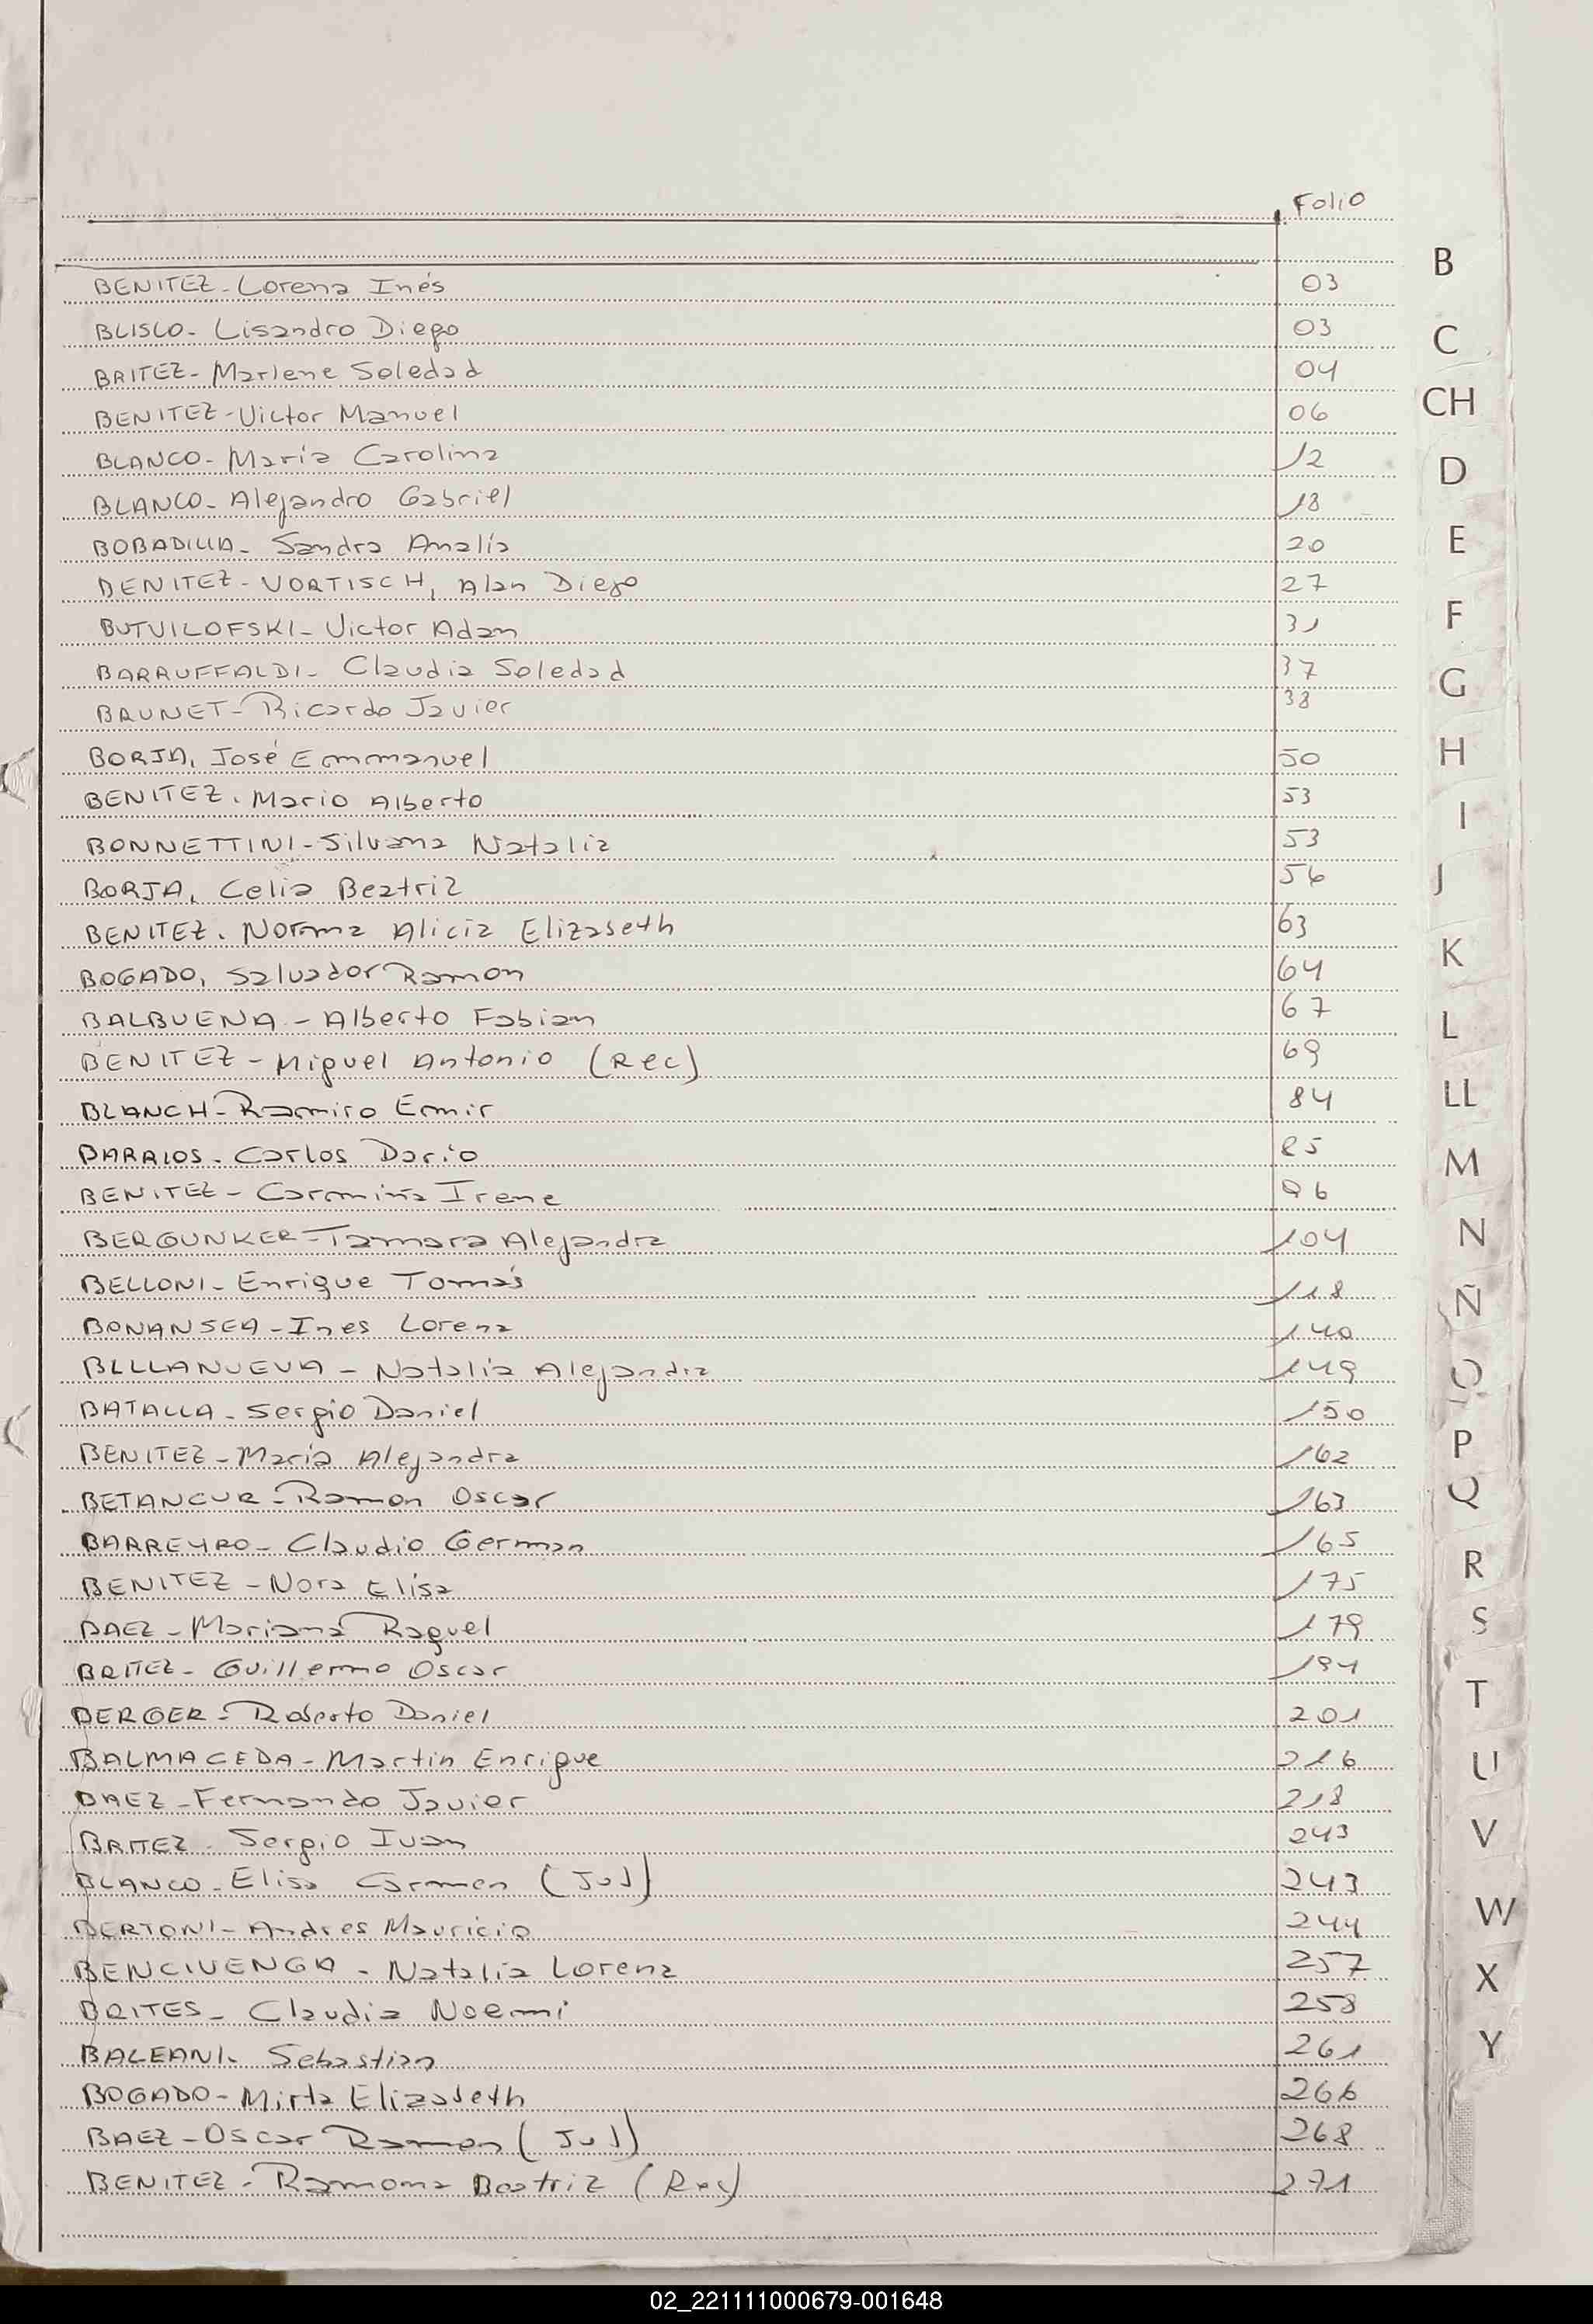 Folio
BENITEZ - Lorena Inés 03
BLISCO - Lisandro Diego 03
BRITEZ - Marlene Soledad 04
BENITEZ - Victor Manuel 06
BLANCO - María Carolina 12
BLANCO - Alejandro Gabriel 18
BOBADILLA - Sandra Analía 20
BENITEZ - VORTISCH, Alan Diego 27
BUTVILOFSKI - Victor Adan 31
BARRUFFALDI - Claudia Soledad 37
BRUNET - Ricardo Javier 38
BORJA, José Emmanuel 50
BENITEZ. Mario Alberto 53
BONNETTINI - Silvana Natalia 53
BORJA, Celia Beatriz 56
BENITEZ. Norma Alicia Elizabeth 63
BOGADO, Salvador Ramon 64
BALBUENA - Alberto Fabian 67
BENITEZ - Miguel Antonio (Rec) 69
BLANCH - Ramiro Emir 84
BARRIOS - Carlos Dario 85
BENITEZ - Carmiña Irene 96
BERGUNKER - Tamara Alejandra 104
BELLONI - Enrique Tomás 118
BONANSEA - Ines Lorena 140
BLLLANUEVA - Natalia Alejandra 149
BATALLA - Sergio Daniel 150
BENITEZ - María Alejandra 162
BETANCUR - Ramon Oscar 163
BARREYRO - Claudio German 165
BENITEZ - Nora Elisa 175
BAEZ - Mariana Raquel 179
BRITEZ - Guillermo Oscar 194
BERGER - Roberto Daniel 201
BALMACEDA - Martin Enrique 216
BAEZ - Fernando Javier 218
BRITEZ - Sergio Ivan 243
BLANCO - Elisa Carmen (Jub) 243
BERTONI - Andres Mauricio 244
BENCIVENGA - Natalia Lorena 257
BRITES - Claudia Noemi 258
BALEANI - Sebastian 261
BOGADO - Mirta Elizabeth 266
BAEZ - Oscar Ramon (Jub) 268
BENITEZ - Ramona Beatriz (Rec) 271
B
C
CH
D
E
F
G
H
I
J
K
L
LL
M
N
Ñ
O
P
Q
R
S
T
U
V
W
X
Y
02_221111000679-001648